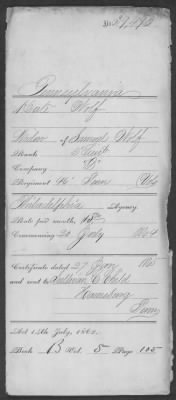 No. 21,493
Pennsylvania
Kate Wolf
Widow of Samuel Wolf
Rank
Company "D"
Regiment 96" Penn Vols
Philadelphia Agency
Rate per month, $8
Commencing 20 July 1864
Certificate dated 27
and sent to
Harrisburg
Penn
Act 14th July, 1862.
Book B Vol. 5 Page 105